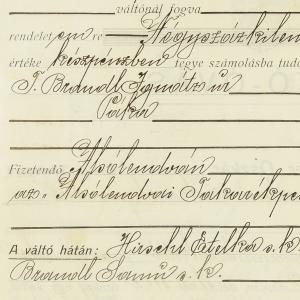 váltónál fogva
rendelet én re Négyszázkilen
értéke készpénzben tegye számolásba tudó
T. Brandl Ignátz úr
Páka
Fizetendő Alsólendván
az Alsólendvai Takarékpé
A váltó hátán: Hirschl Etelka s. k.
Brandl Samu s. k.